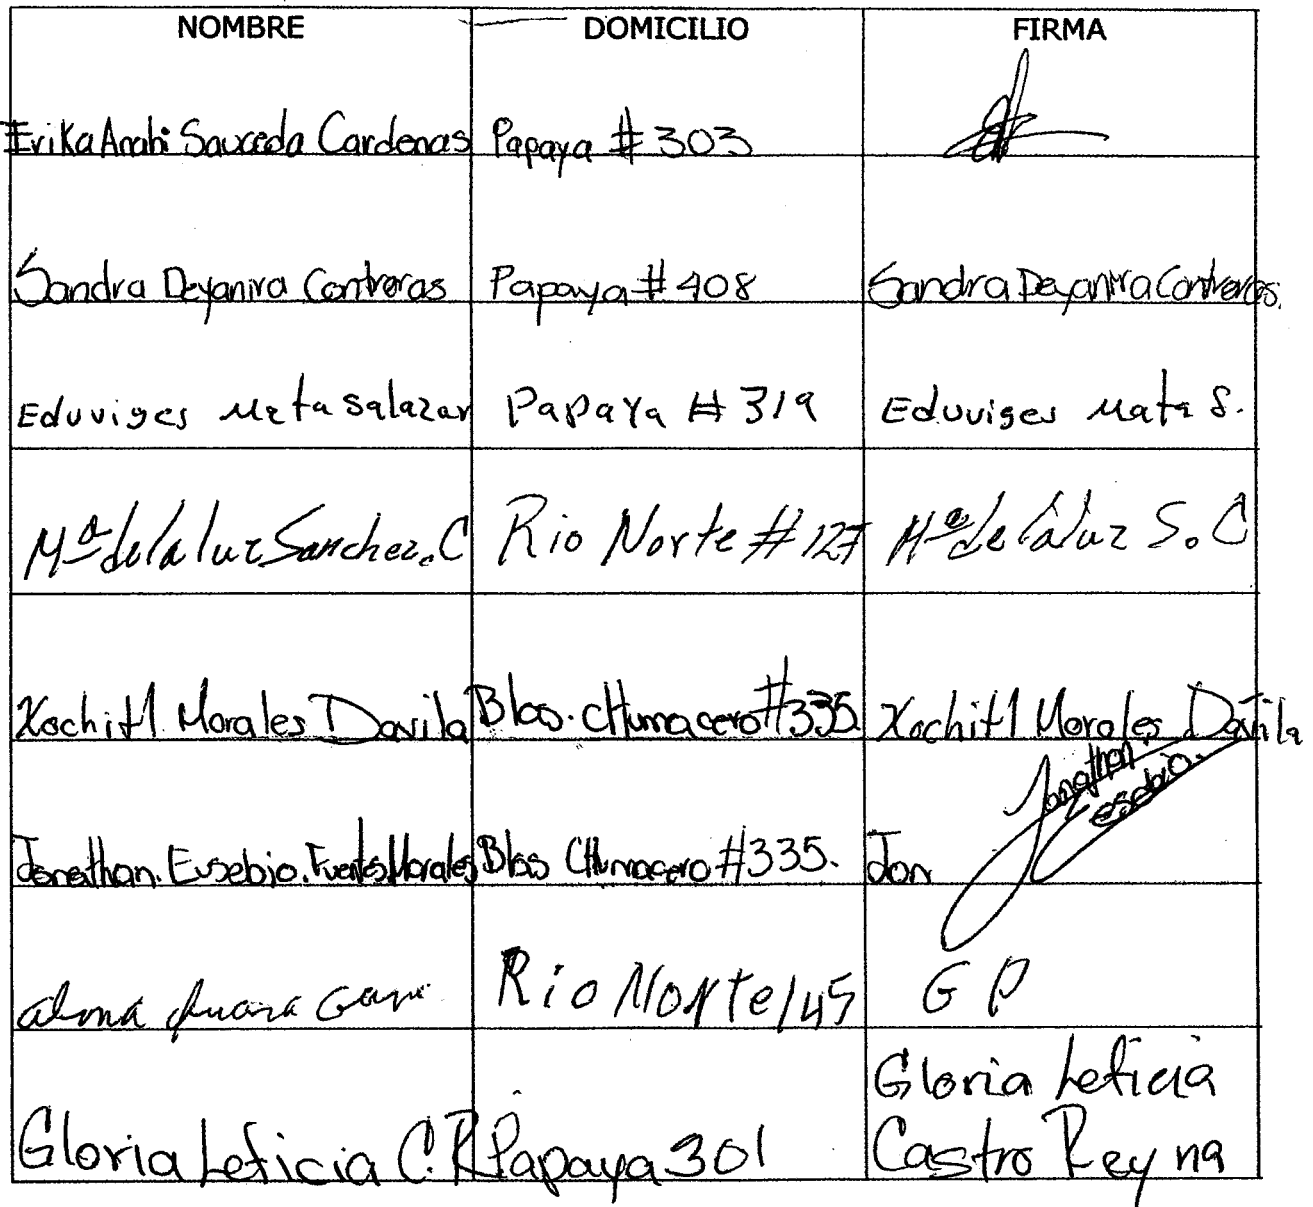 NOMBRE DOMICILIO FIRMA
Erika Anahi Sauceda Cardenas Papaya # 303
Sandra Deyanira Contreras Papaya # 408 Sandra Deyanira Contreras.
Eduviges Mata Salazar Papaya # 319 Eduviges Mata S.
Mª de la luz Sanchez. C Rio Norte # 127 Mª de la luz S. C
Xochitl Morales Davila Blas. CHumacero #335 Xochitl Morales Davila
Jonathan
esebio.
Jonathan. Eusebio. Fuentes Morales Blas CHumacero #335. Jon
alma Juana Rio Norte 145 G P
Gloria Leticia
Gloria Leticia C. R Papaya 301 Castro Reyna